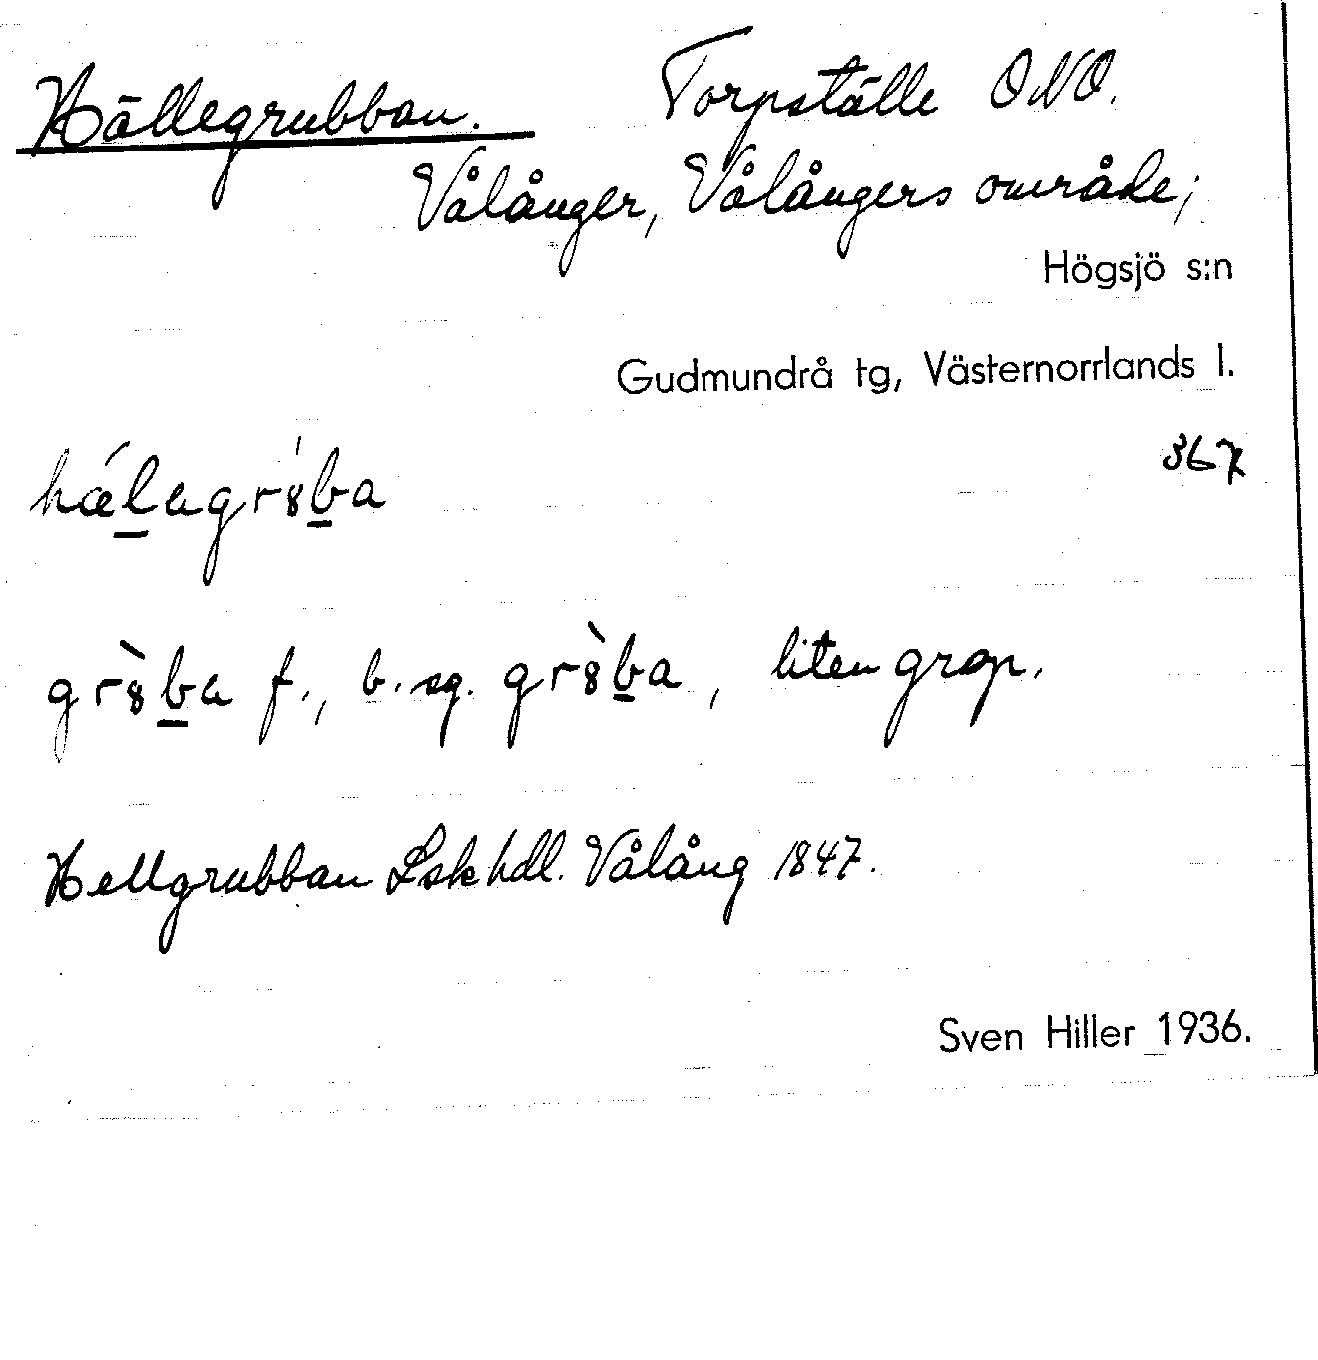 Hällegrubban. Torpställe ONO.
Vålånger, Vålångers område;
Högsjö s:n
Gudmundrå tg, Västernorrlands l.
367
hǽl̲agr8̍b̲a
gr8̀b̲a f., b. sg. gr8̀b̲a, liten grop.
Hellgrubban Lskhdl. Vålång 1847.
Sven Hiller 1936.